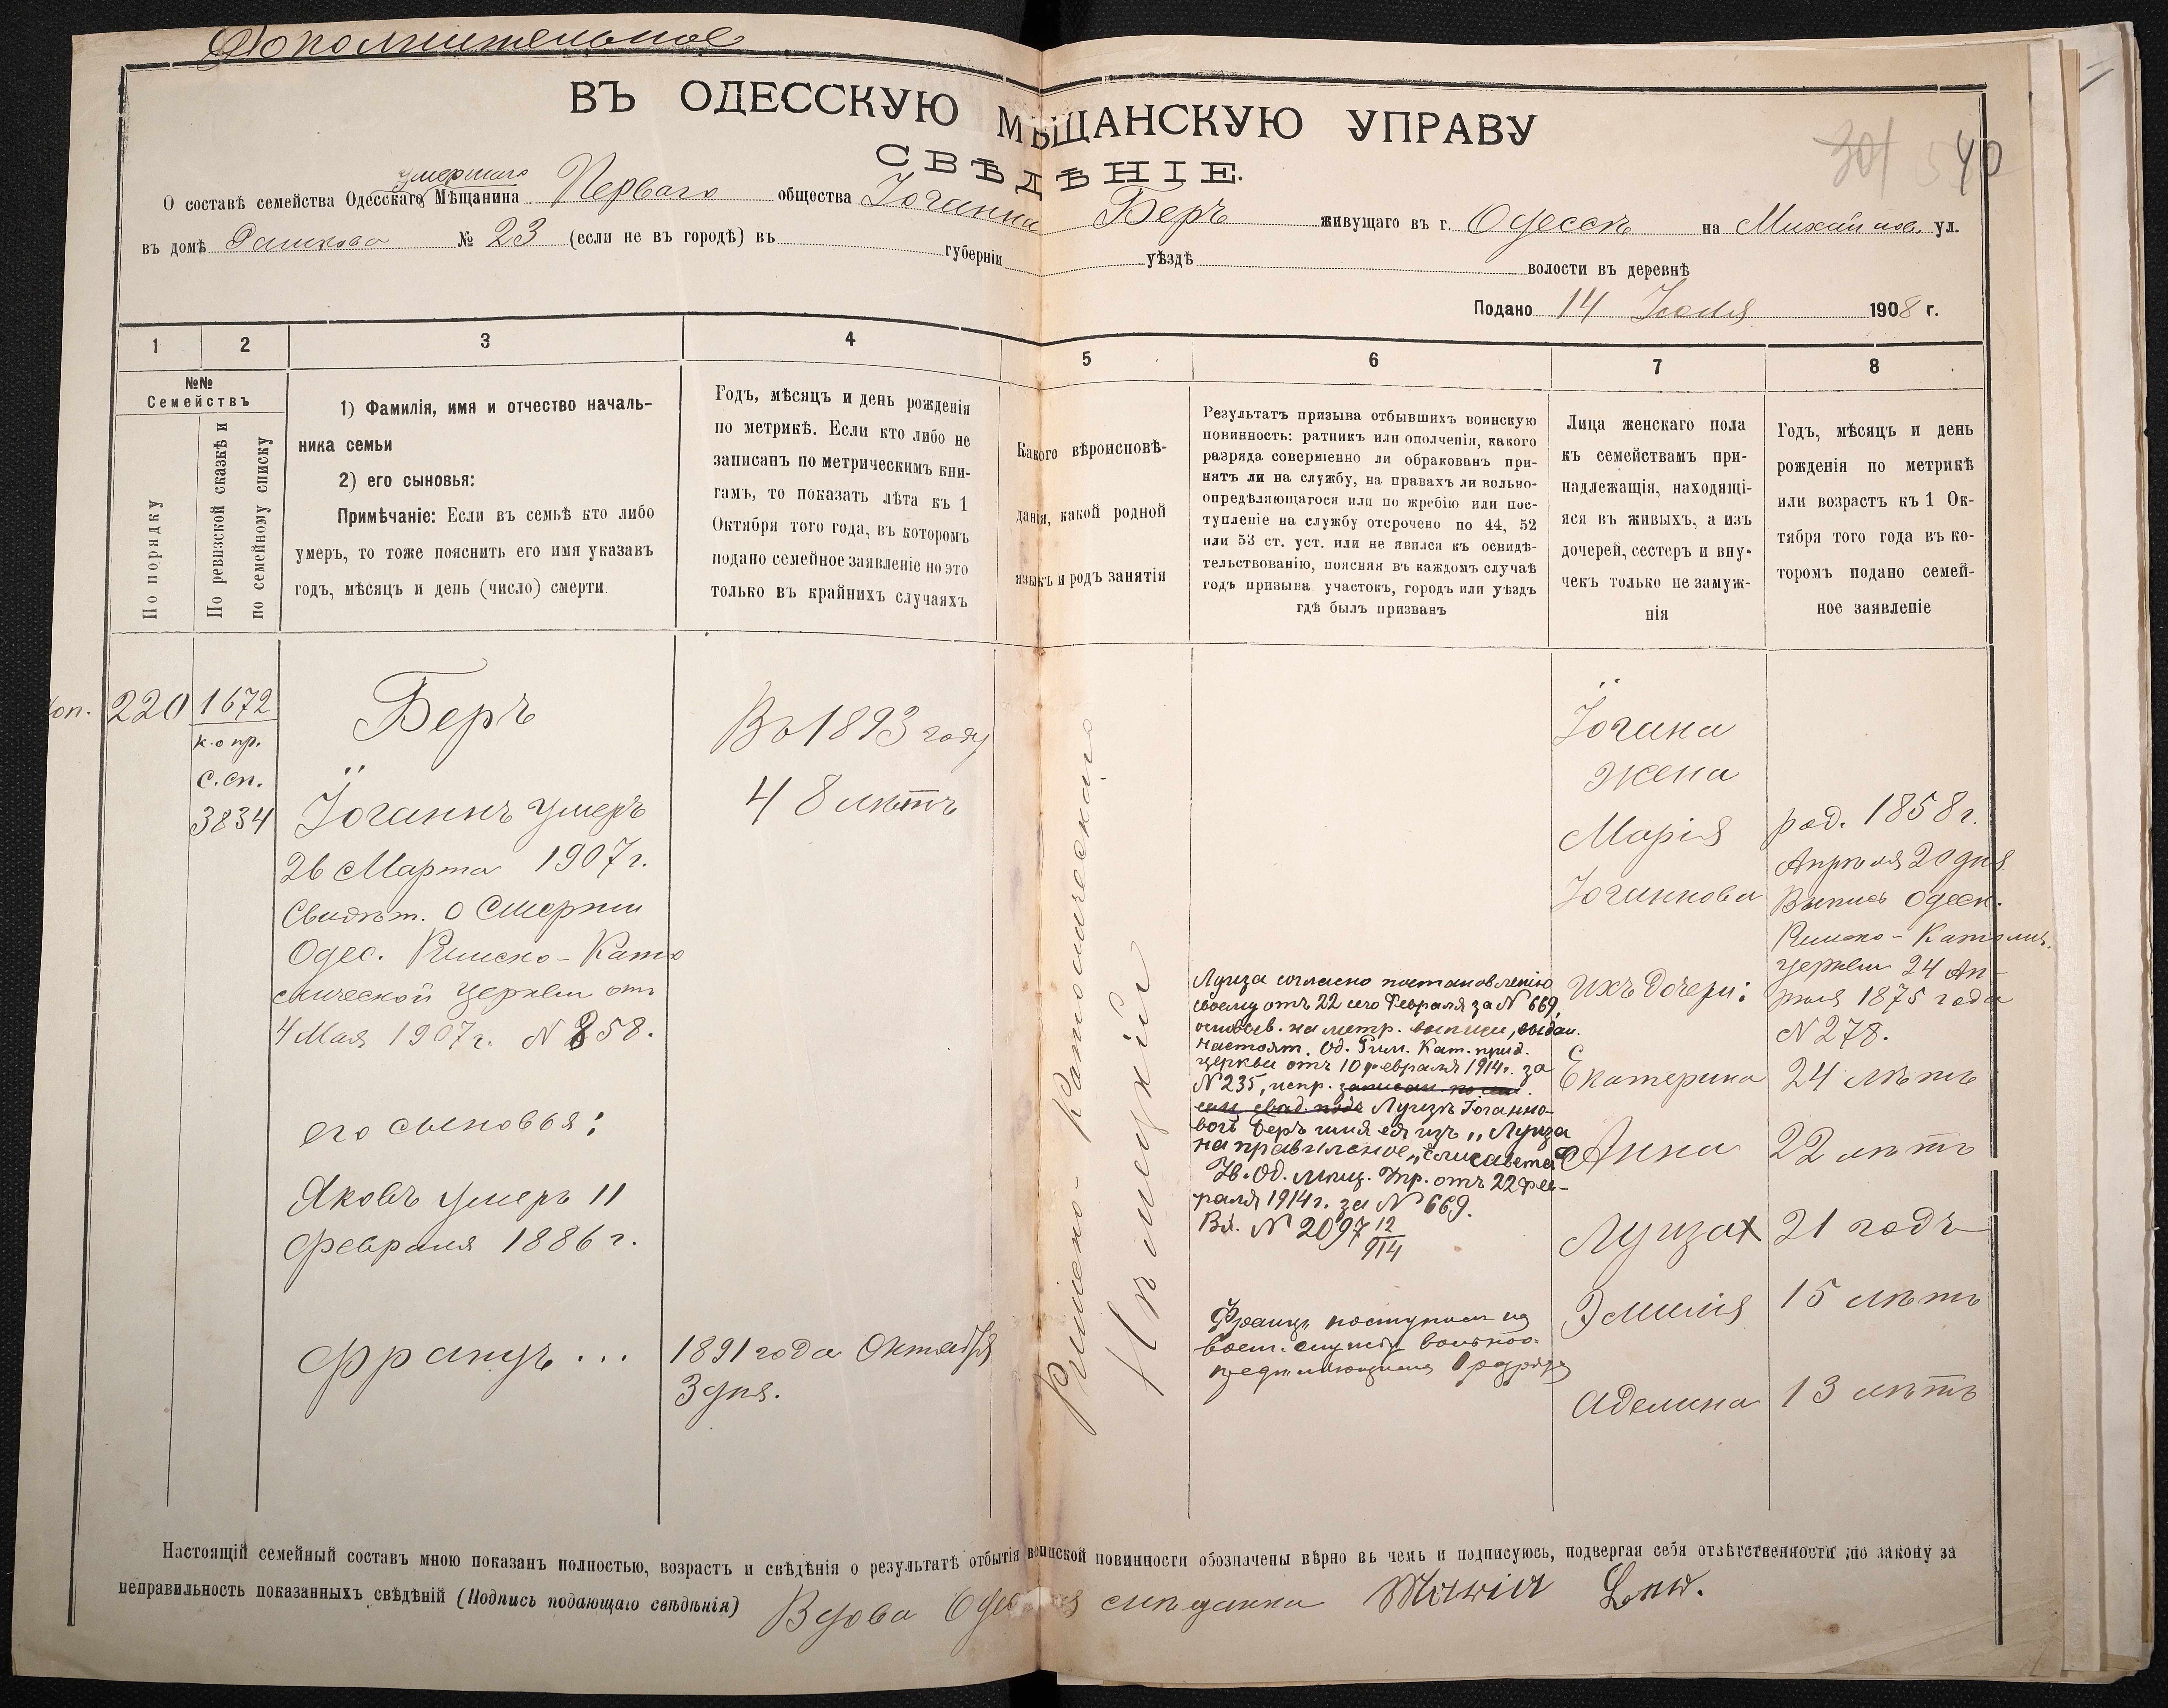 Дополнительное
ВЪ ОДЕССКУЮ МѢЩАНСКУЮ УПРАВУ
СВѢДѢНІЕ.
301 540
умершаго
О составѣ семейства Одесскаго Мѣщанина Перваго общества Іоганна Беръ живущаго въ г. Одессѣ на Михайлов. ул.
въ домѣ № 23 (если не въ городѣ) въ губерніи уѣздѣ волости въ деревнѣ
Подано 14 1908 г.
1 2 3 4 5 6 7 8
№№
Семействъ
По порядку
По ревизской сказкѣ и
по семейному списку
1) Фамилія, имя и отчество началь-
ника семьи
2) его сыновья:
Примѣчаніе: Если въ семьѣ кто либо
умеръ, то тоже пояснить его имя указавъ
годъ, мѣсяцъ и день (число) смерти.
Годъ, мѣсяцъ и день рожденія
по метрикѣ. Если кто либо не
записанъ по метрическимъ кни-
гамъ, то показать лѣта къ 1
Октября того года, въ которомъ
подано семейное заявленіе но это
только въ крайнихъ случаяхъ
Какого вѣроисповѣ-
данія, какой родной
языкъ и родъ занятія
Результатъ призыва отбывшихъ воинскую
повинность: ратникъ или ополченія, какого
разряда совершенно ли обракованъ при-
нятъ ли на службу, на правахъ ли вольно-
опредѣляющагося или по жребію или пос-
тупленіе на службу отсрочено по 44, 52
или 53 ст. уст. или не явился къ освидѣ-
тельствованію, поясняя въ каждомъ случаѣ
годъ призыва участокъ, городъ или уѣздъ
гдѣ былъ призванъ
Лица женскаго пола
къ семействамъ при-
надлежащія, находящі-
яся въ живыхъ, а изъ
дочерей, сестеръ и вну-
чекъ только не замуж-
нія
Годъ, мѣсяцъ и день
рожденія по метрикѣ
или возрастъ къ 1 Ок-
тября того года въ ко-
торомъ подано семей-
ное заявленіе
220
1672
к.о пр.
с.сп.
3834
Беръ
Іоганнъ умеръ
26 Марта 1907 г.
Свидѣт. о смерти
Одес. Римско-Като
лической церкви отъ
4 Мая 1907 г. N 858.
его сыновья:
Яковъ умеръ 11
февраля 1886 г.
Францъ ...
Въ 1893 году
48 лѣтъ
1891 года Октября
3 дня.
Римско-Католическаго
Нѣмецкій
Луиза согласно постановленію
своему отъ 22 сего Февраля за N 669,
основ. на метр. выписи, выдан.
настоят. Од. Рим. Кат. прих.
церкви отъ 10 февраля 1914 г. за
N 235, испр.
Луизѣ Іоганно-
вой Беръ имя ея изъ „Луиза
на правильное „Елисавета"
Од. мѣщ. Упр. отъ 22 фев-
раля 1914 г. за N 669.
Вх. N 2097 12/914
Францъ поступилъ на
воен. службу вольноо-
предѣляющимся разряда
Іогана
жена
Марія
Іоганнова
ихъ дочери:
Екатерина
Анна
Луиза х
Эмилія
Аделина
род. 1858 г.
Апрѣля 20 дня
Выпись Одесск.
Римско-Католич.
церкви 24 Ап-
рѣля 1875 года
N 278.
24 лѣтъ
22 лѣтъ
21 годъ
15 лѣтъ
13 лѣтъ
Настоящій семейный составъ мною показанъ полностью, возрастъ и свѣдѣнія о результатѣ отбытія воинской повинности обозначены вѣрно въ чемъ и подписуюсь, подвергая себя отвѣтственности по закону за
неправильность показанныхъ свѣдѣній (Подпись подающаго свѣдѣнія) Вдова мѣщанка